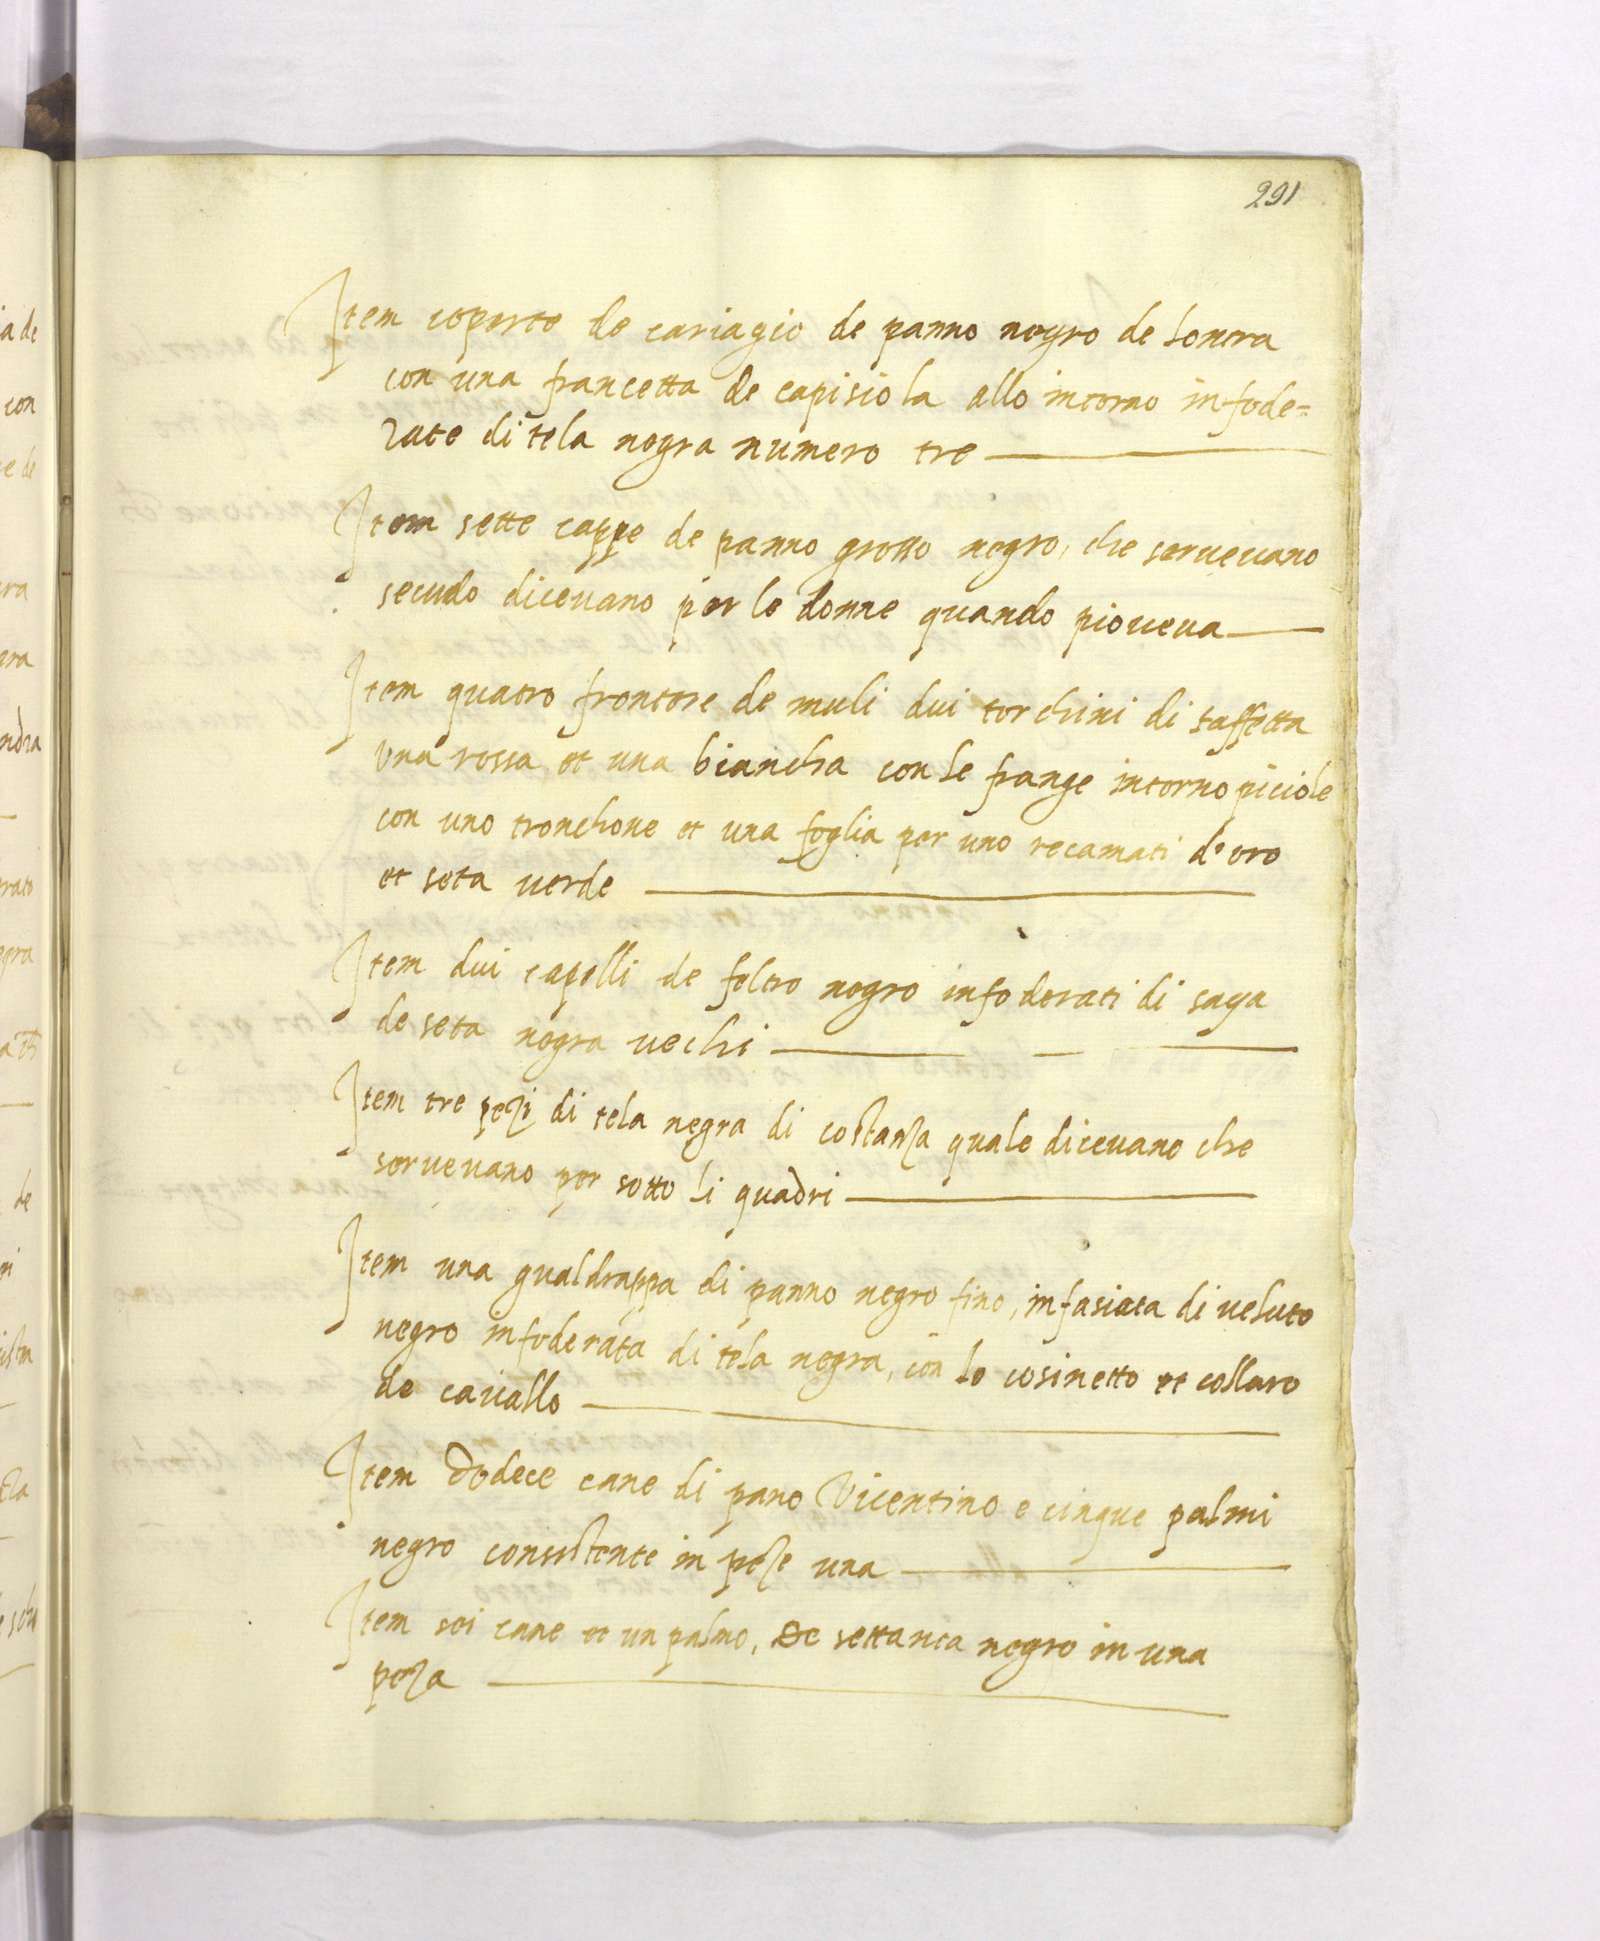 291
Item coperte de cariagio de panno negro de Lontra
con una francetta de capisiola allo intorno infode=
rate di tela negra numero tre
Item sette cappe de panno grosso negro, che servevano
secundo dicevano per le donne quando pioveva
Item quatro frontere de muli dui torchini di taffetta
una rossa et una biancha con le frange intorno piciole
con uno tronchone et una foglia per uno recamati d'oro
et seta verde
Item dui capelli de feltro negro infoderati di saya
de seta negra vechi
Item tre pezi di tela negra di costanza quale dicevano che
servevano per sotto li quadri
Item una gualdrappa di panno negro fino, infasiata di veluto
negro infoderata di tela negra, con lo cosinetto et collaro
de cavallo
Item dodece cane di pano Vicentino e cinque palmi
negro consistente in peze una
Item sei cane et un palmo, de settanta negro in una
peza